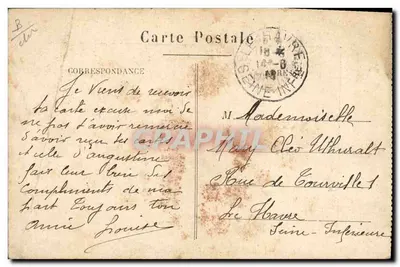 B
Carte Postale
LE HAVRE
18 *
14 - 8
SEINE INFRE
CORRESPONDANCE
Je viens de recevoir
ta carte excuse moi de
ne pas t'avoir remercié
d'avoir reçu
et celle d'augustine
fait leur bien des
compliments de ma
part Toujours ton
amie Louise
M Mademoiselle
Cléo
Rue de Tourville 1
Le Havre
Seine-Inférieure
DELCAMPHI